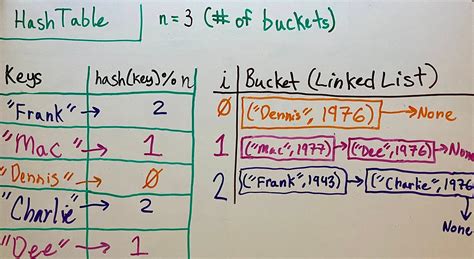 HashTable n=3 (# of buckets)
Keys hash(key)%n i Bucket (Linked List)
"Frank" → 2 0 ("Dennis", 1976) → None
"Mac" → 1 1 ("Mac", 1977) → ("Dee", 1976) → None
"Dennis" → 0 2 ("Frank", 1943) → ("Charlie", 1976
"Charlie" → 2 None
"Dee" → 1